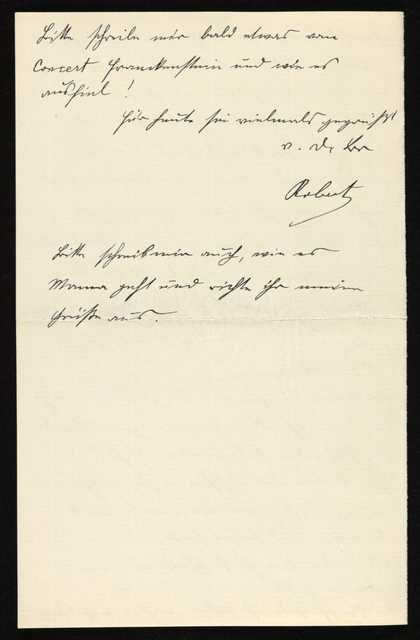 Bitte schreibe mir bald etwas vom
Concert Franckenstein und wie es
ausfiel!
Für heute sei vielmals gegrüßt
v. D.
Robert
Bitte schreib mir auch, wie es
Mama geht und richte ihr meine
Grüße aus.